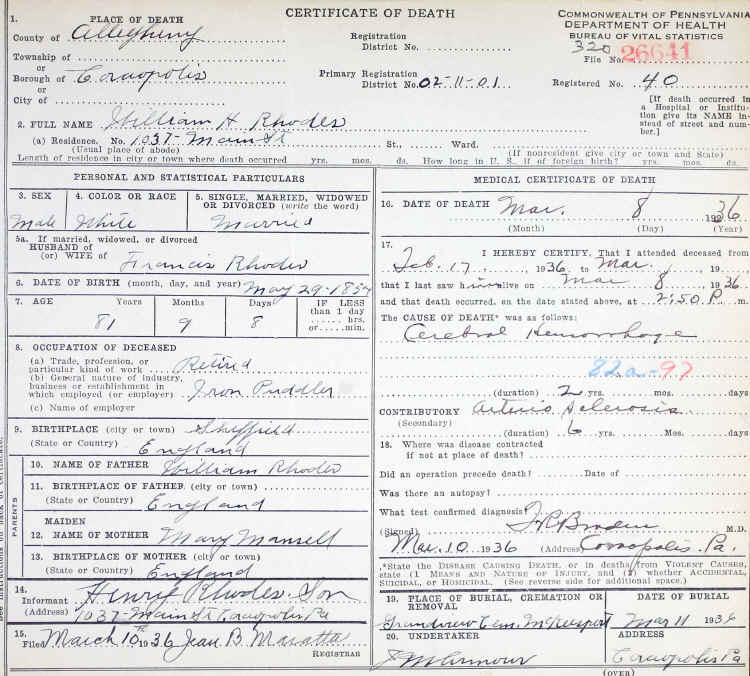 1. PLACE OF DEATH
CERTIFICATE OF DEATH
COMMONWEALTH OF PENNSYLVANIA
DEPARTMENT OF HEALTH
BUREAU OF VITAL STATISTICS
County of Allegheny
Registration District No.
320
File No. 26641
Township of
or
Borough of Coraopolis
or
City of
Primary Registration District No. 02-11-01
Registered No. 40
[If death occurred in a Hospital or Institution give its NAME instead of street and number.]
2. FULL NAME William H Rhodes
(a) Residence. No. 1037 Main St St., Ward.
(Usual place of abode) (If nonresident give city or town and State)
Length of residence in city or town where death occurred yrs. mos. ds. How long in U. S., if of foreign birth? yrs. mos. ds.
PERSONAL AND STATISTICAL PARTICULARS
3. SEX
4. COLOR OR RACE
5. SINGLE, MARRIED, WIDOWED OR DIVORCED (write the word)
Male White Married
5a. If married, widowed, or divorced
HUSBAND of
(or) WIFE of Francis Rhodes
6. DATE OF BIRTH (month, day, and year) May 29-1854
7. AGE Years Months Days IF LESS than 1 day
81 9 8 hrs. or min.
8. OCCUPATION OF DECEASED
(a) Trade, profession, or particular kind of work Retired
(b) General nature of industry, business or establishment in which employed (or employer) Iron Puddler
(c) Name of employer
9. BIRTHPLACE (city or town) Sheffield
(State or Country) England
PARENTS
10. NAME OF FATHER William Rhodes
11. BIRTHPLACE OF FATHER (city or town)
(State or Country) England
MAIDEN
12. NAME OF MOTHER Mary Mansell
13. BIRTHPLACE OF MOTHER (city or town)
(State or Country) England
14. Informant Henry Rhodes Son
(Address) 1037 Main St Coraopolis Pa
15. Filed March 10th 1936 Jean B.
REGISTRAR
MEDICAL CERTIFICATE OF DEATH
16. DATE OF DEATH Mar. 8 1936
(Month) (Day) (Year)
17. I HEREBY CERTIFY, That I attended deceased from
Feb. 17, 1936, to Mar. , 19
that I last saw him alive on Mar 8, 1936
and that death occurred, on the date stated above, at 2:50 P. m.
The CAUSE OF DEATH* was as follows:
Cerebral Hemorrhage
82a-97
(duration) 2 yrs. mos. days
CONTRIBUTORY Arterio Sclerosis
(Secondary)
(duration) 6 yrs. Mos. days
18. Where was disease contracted
if not at place of death?
Did an operation precede death? Date of
Was there an autopsy?
What test confirmed diagnosis?
(Signed) M.D.
Mar. 10, 1936 (Address) Coraopolis. Pa.
*State the DISEASE CAUSING DEATH, or in deaths from VIOLENT CAUSES, state (1 MEANS AND NATURE OF INJURY, and (2) whether ACCIDENTAL, SUICIDAL, or HOMICIDAL. (See reverse side for additional space.)
19. PLACE OF BURIAL, CREMATION OR REMOVAL
DATE OF BURIAL
Grandview Cem. McKeesport Mar 11 1936
20. UNDERTAKER
ADDRESS
Coraopolis Pa
(OVER)